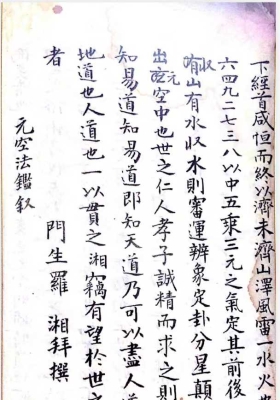 下經首咸恒而終以濟未濟山澤風雷一水火
六四九二七三八以中五乘三元之氣定其前後
收山有水收水則審運辨象定卦分星顛
出元空中也世之仁人孝子誠精而求之則
知易道知易道即知天道乃可以盡人道
地道也人道也一以貫之湘竊有望於世之
者 門生羅 湘拜撰
元空法鑑叙